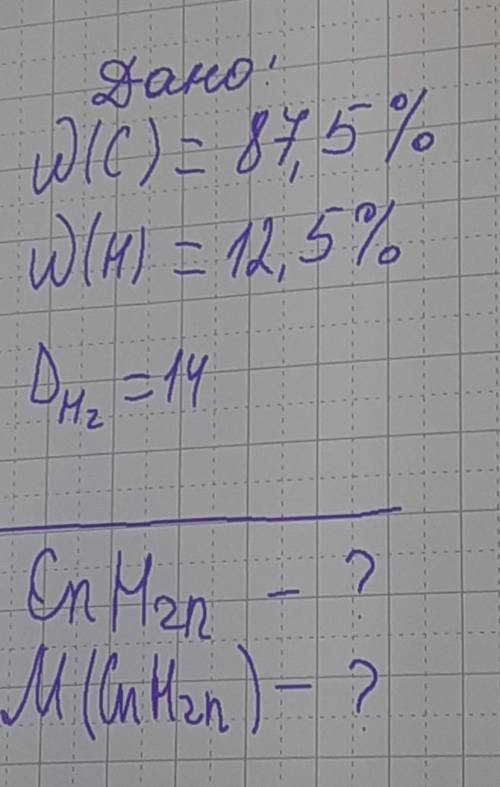 Дано:
W(C) = 87,5%
W(H) = 12,5%
D_H₂ = 14
CnH₂n - ?
M(CnH₂n) - ?